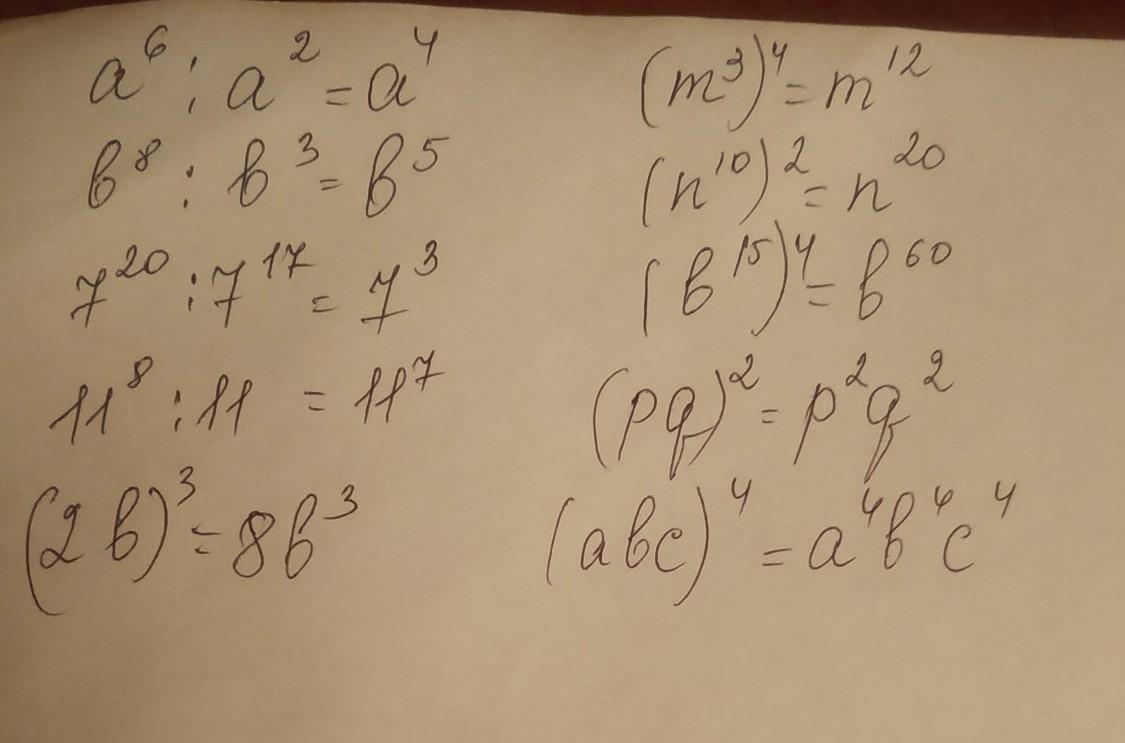 a⁶ : a² = a⁴
b⁸ : b³ = b⁵
7²⁰ : 7¹⁷ = 7³
11⁸ : 11 = 11⁷
(2b)³ = 8b³
(m³)⁴ = m¹²
(n¹⁰)² = n²⁰
(b¹⁵)⁴ = b⁶⁰
(pq)² = p²q²
(abc)⁴ = a⁴b⁴c⁴